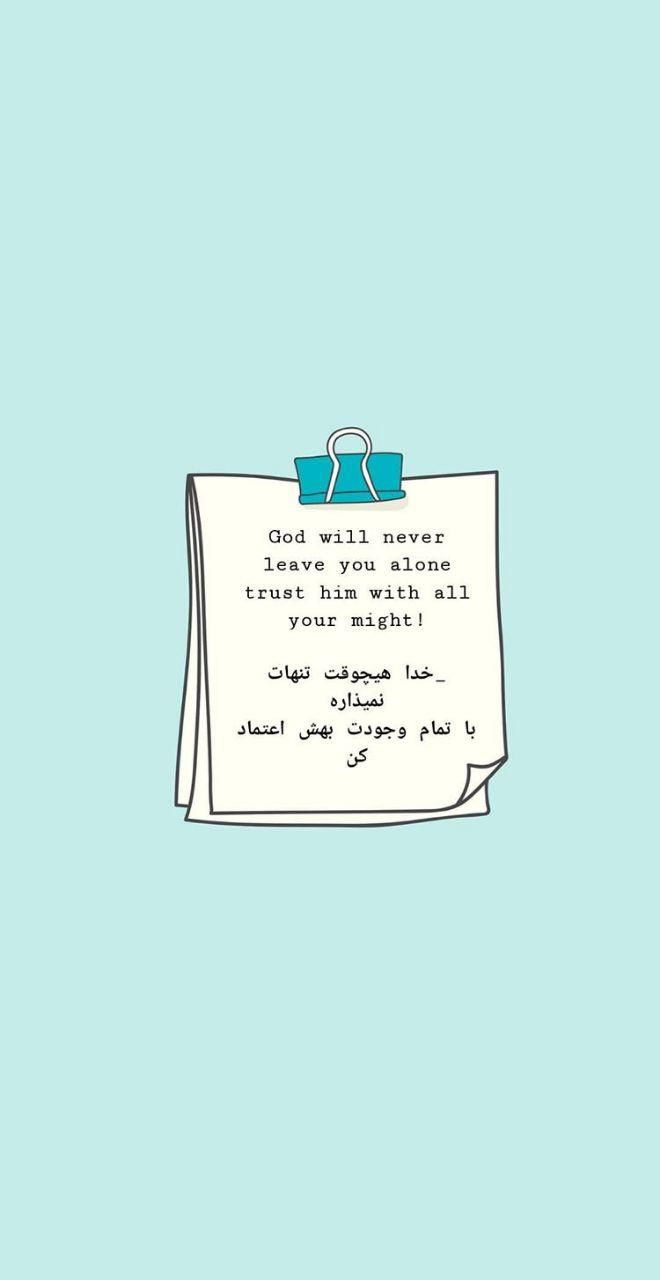 God will never
leave you alone
trust him with all
your might!
_خدا هیچوقت تنهات
نمیذاره
با تمام وجودت بهش اعتماد
کن